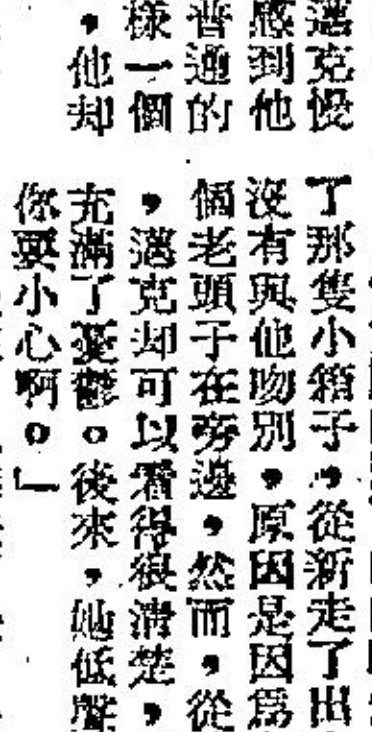 邁克慢
感到他
普通的
樣一個
，他却
了那隻小箱子，從新走了出
沒有與他吻別，原因是因爲
個老頭子在旁邊，然而，從
，邁克却可以看得很清楚，
充滿了憂鬱。後來，她低聲
你要小心啊。」